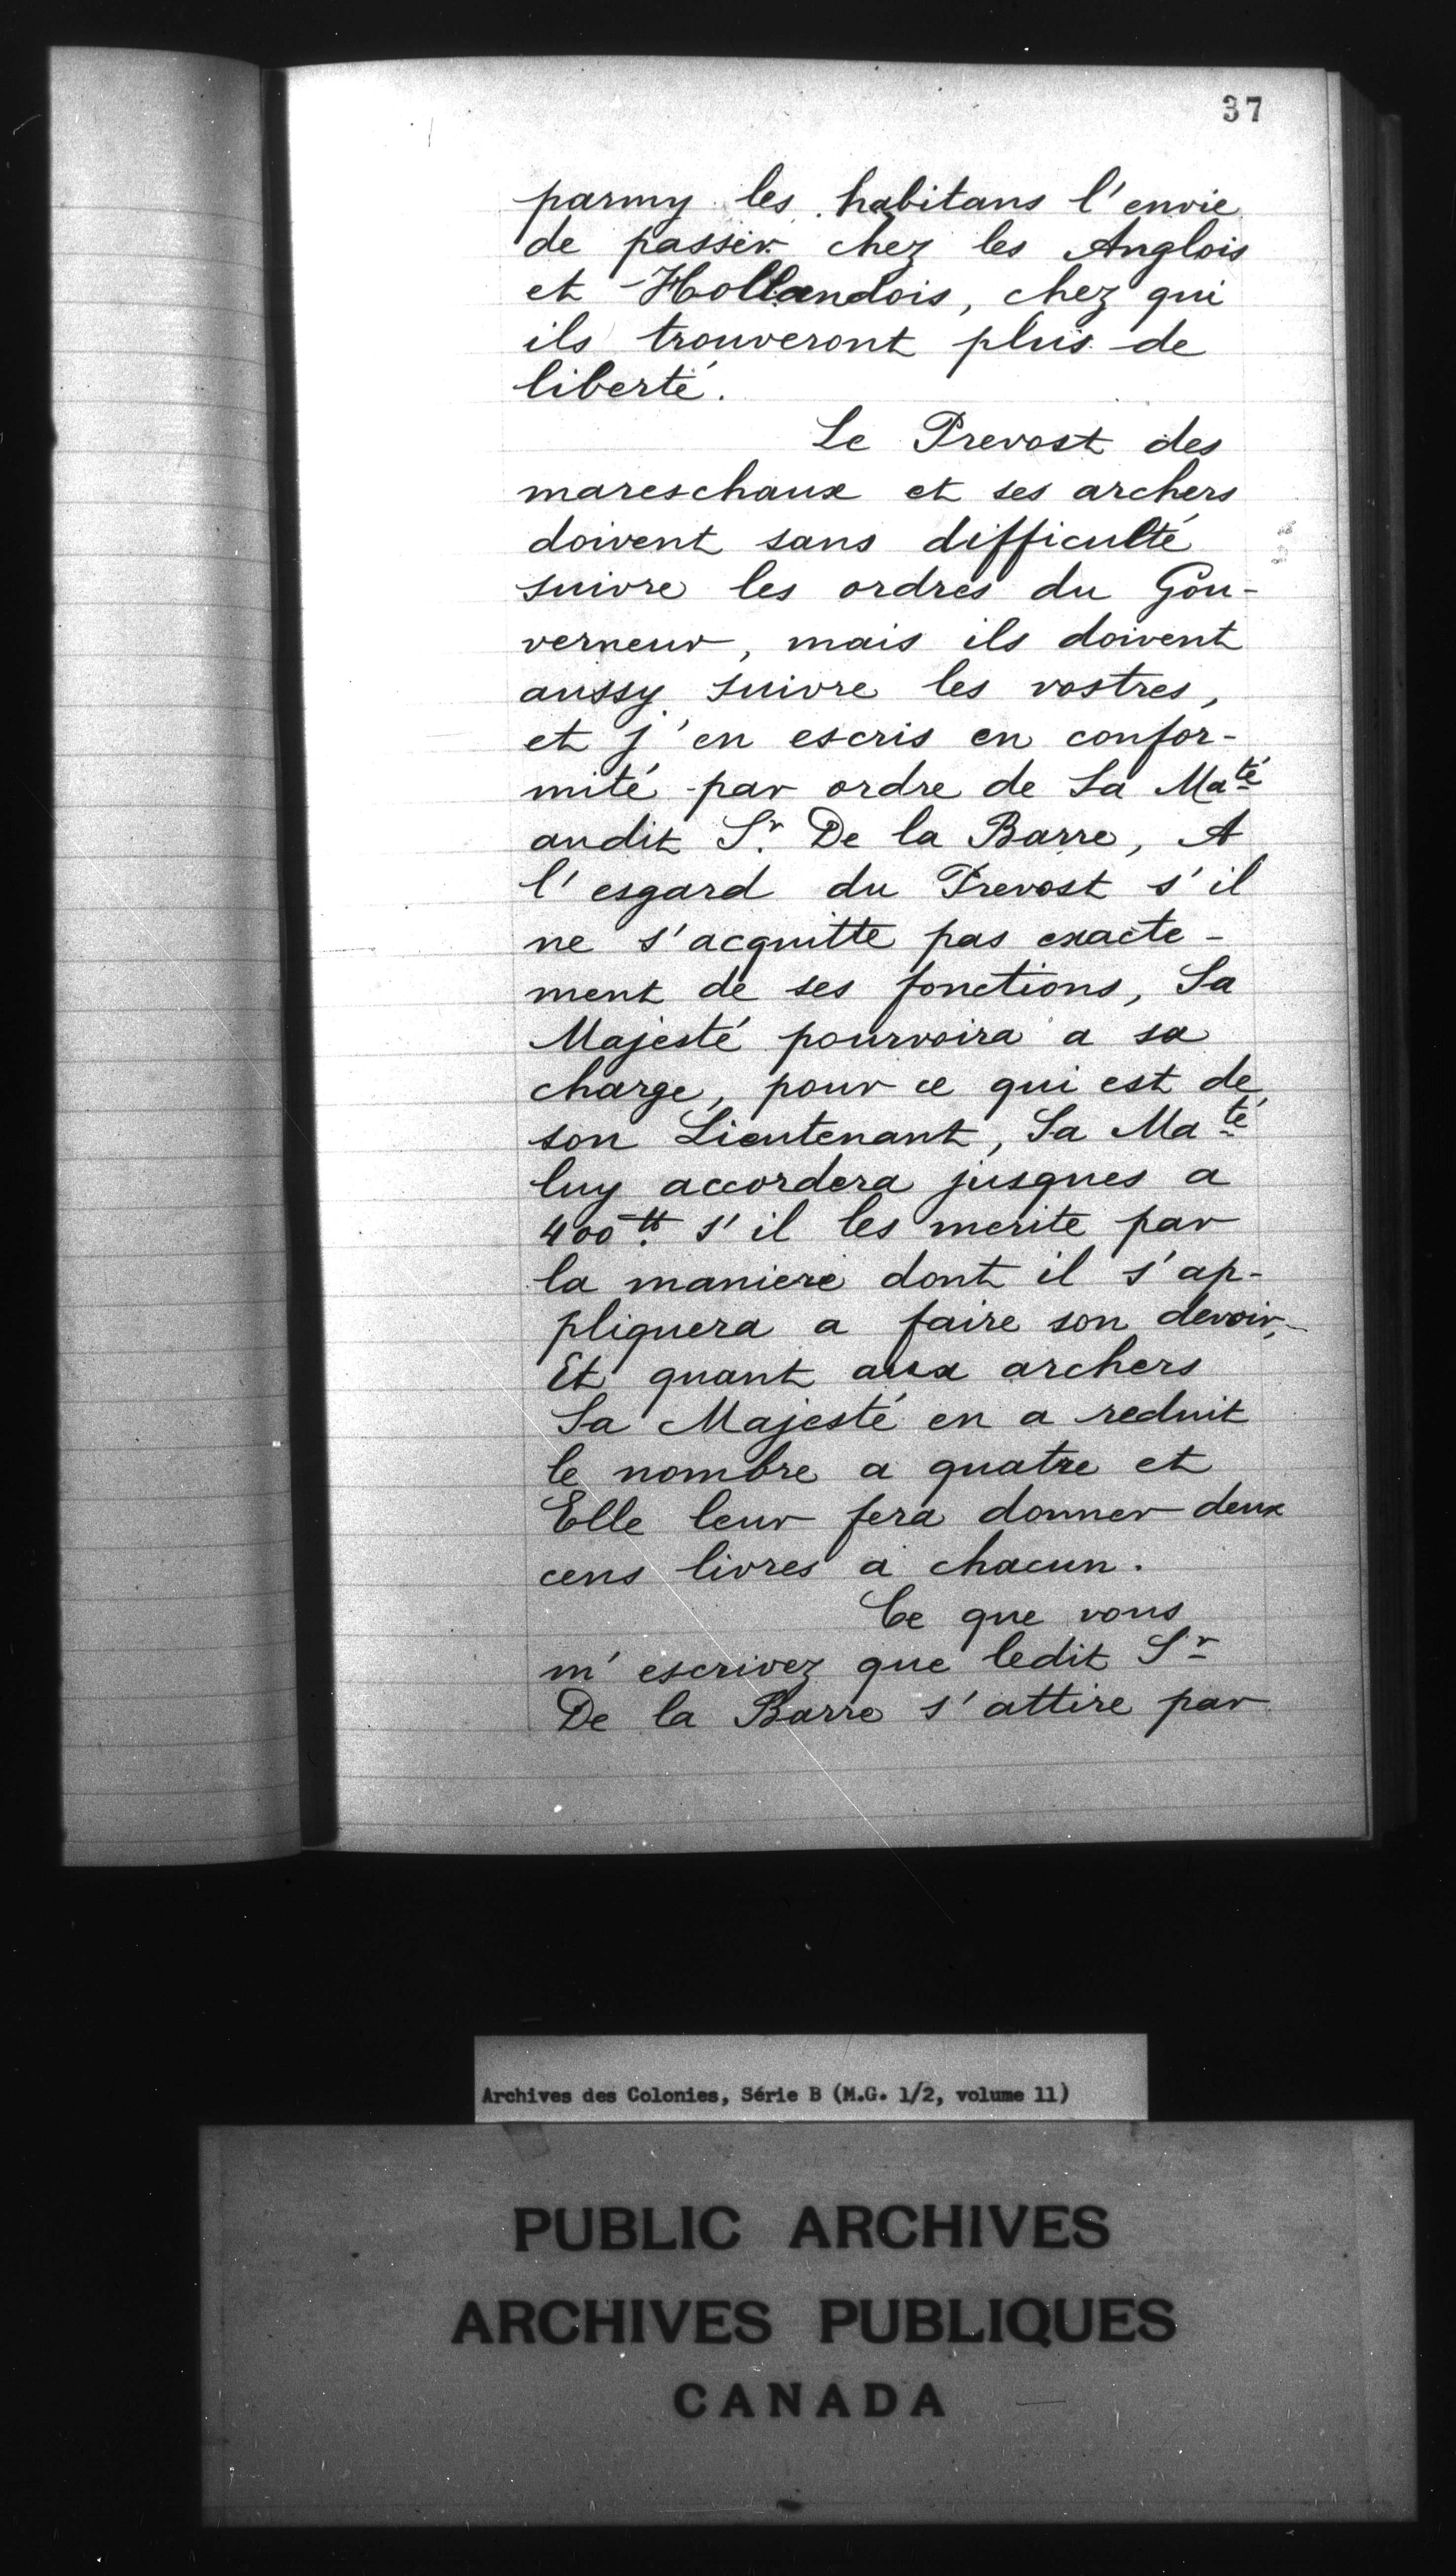 37
parmy les habitans l'envie
de passer chez les Anglois
et Hollandois, chez qui
ils trouveront plus de
liberté.
Le Prevost des
mareschaux et ses archers
doivent sans difficulté
suivre les ordres du Gou-
verneur, mais ils doivent
aussy suivre les vostres,
et j'en escris en confor-
mité par ordre de Sa Maté
audit Sr. De la Barre, A
l'esgard du Prevost s'il
ne s'acquitte pas exacte-
ment de ses fonctions, Sa
Majesté pourvoira a sa
charge, pour ce qui est de
son Lieutenant, Sa Maté
luy accordera jusques a
400tt. s'il les merite par
la maniere dont il s'ap-
pliquera a faire son devoir,
Et quant aux archers
Sa Majesté en a reduit
le nombre a quatre et
Elle leur fera donner deux
cens livres a chacun.
Ce que vous
m'escrivez que ledit Sr
De la Barre s'attire par
Archives des Colonies, Série B (M.G. 1/2, volume 11)
PUBLIC ARCHIVES
ARCHIVES PUBLIQUES
CANADA